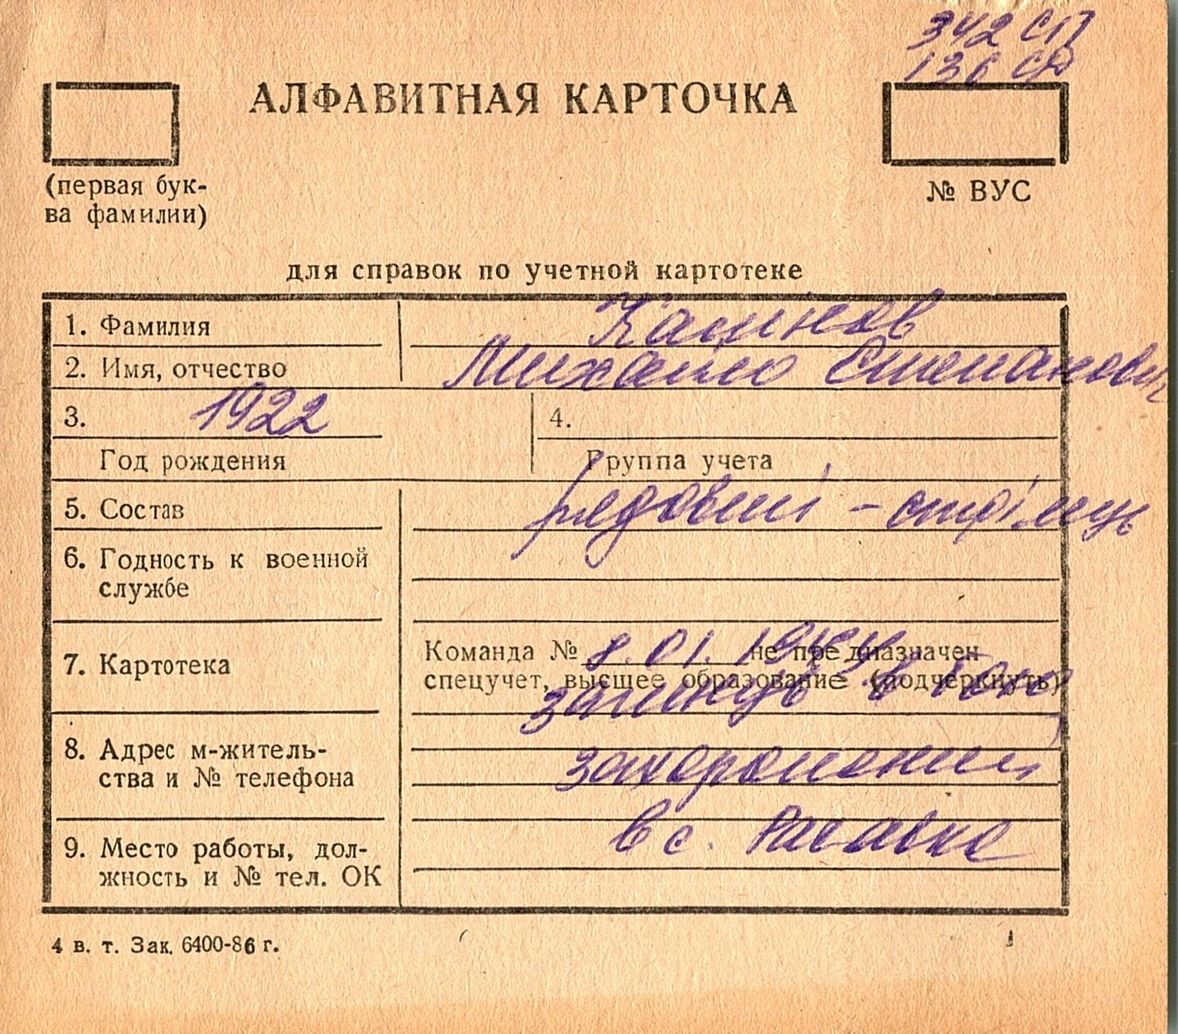 342 СП
136 СД
АЛФАВИТНАЯ КАРТОЧКА
(первая бук-
ва фамилии)
№ ВУС
для справок по учетной картотеке
1. Фамилия
2. Имя, отчество Михайло Степанович
3. 1922
4.
Год рождения
Группа учета
5. Состав рядовий - стрілець
6. Годность к военной
службе
7. Картотека
Команда № 8.01.1944 не предназначен
спецучет, высшее образование (подчеркнуть)
загинув в бою
8. Адрес м-житель-
ства и № телефона
захоронений
в с.
9. Место работы, дол-
жность и № тел. ОК
4 в. т. Зак. 6400-86 г.